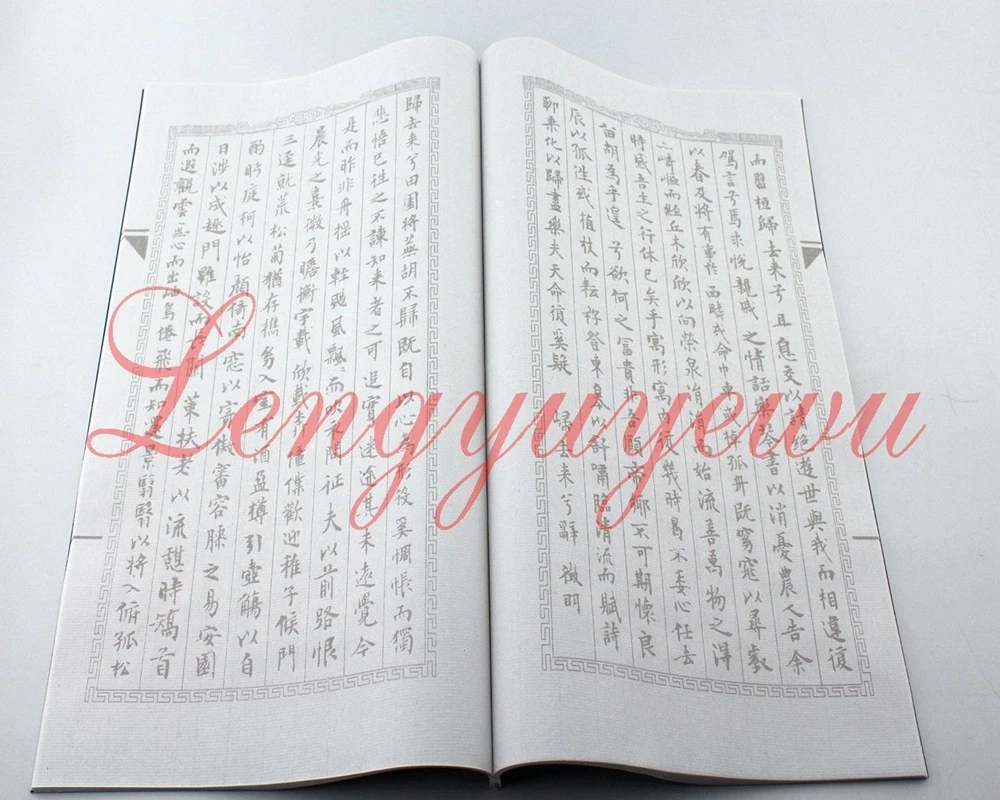 歸去来兮田園将蕪胡不歸既自以心為形役奚惆悵而獨
悲悟已往之不諫知来者之可追實迷途其未遠覺今
是而昨非舟摇以輕颺風飄々而吹衣問征夫以前路恨
晨光之熹微乃瞻衡宇載欣載奔僮僕歡迎稚子候門
三逕就荒松菊猶存携幼入室有酒盈罇引壺觴以自
酌眄庭柯以怡顔倚南窓以寄傲審容膝之易安園
日涉以成趣門雖設而常關策扶老以流憩時矯首
而遐觀雲無心而出岫鳥倦飛而知還景翳翳以将入撫孤松
而盤桓歸去来兮且息交以請絶遊世與我而相違復
駕言兮焉求悦親戚之情話樂琴書以消憂農人告余
以春及将有事於西疇或命巾車或棹孤舟既窈窕以尋壑
亦崎嶇而經丘木欣欣以向榮泉涓涓而始流善萬物之得
時感吾生之行休已矣乎寓形宇内復幾時曷不委心任去
留胡為乎遑兮欲何之富貴非吾願帝鄉不可期懷良
辰以孤往或植杖而耘耔登東皋以舒嘯臨清流而賦詩
聊乘化以歸盡樂夫天命復奚疑 歸去来兮辭 徵明
Lengyuyewu